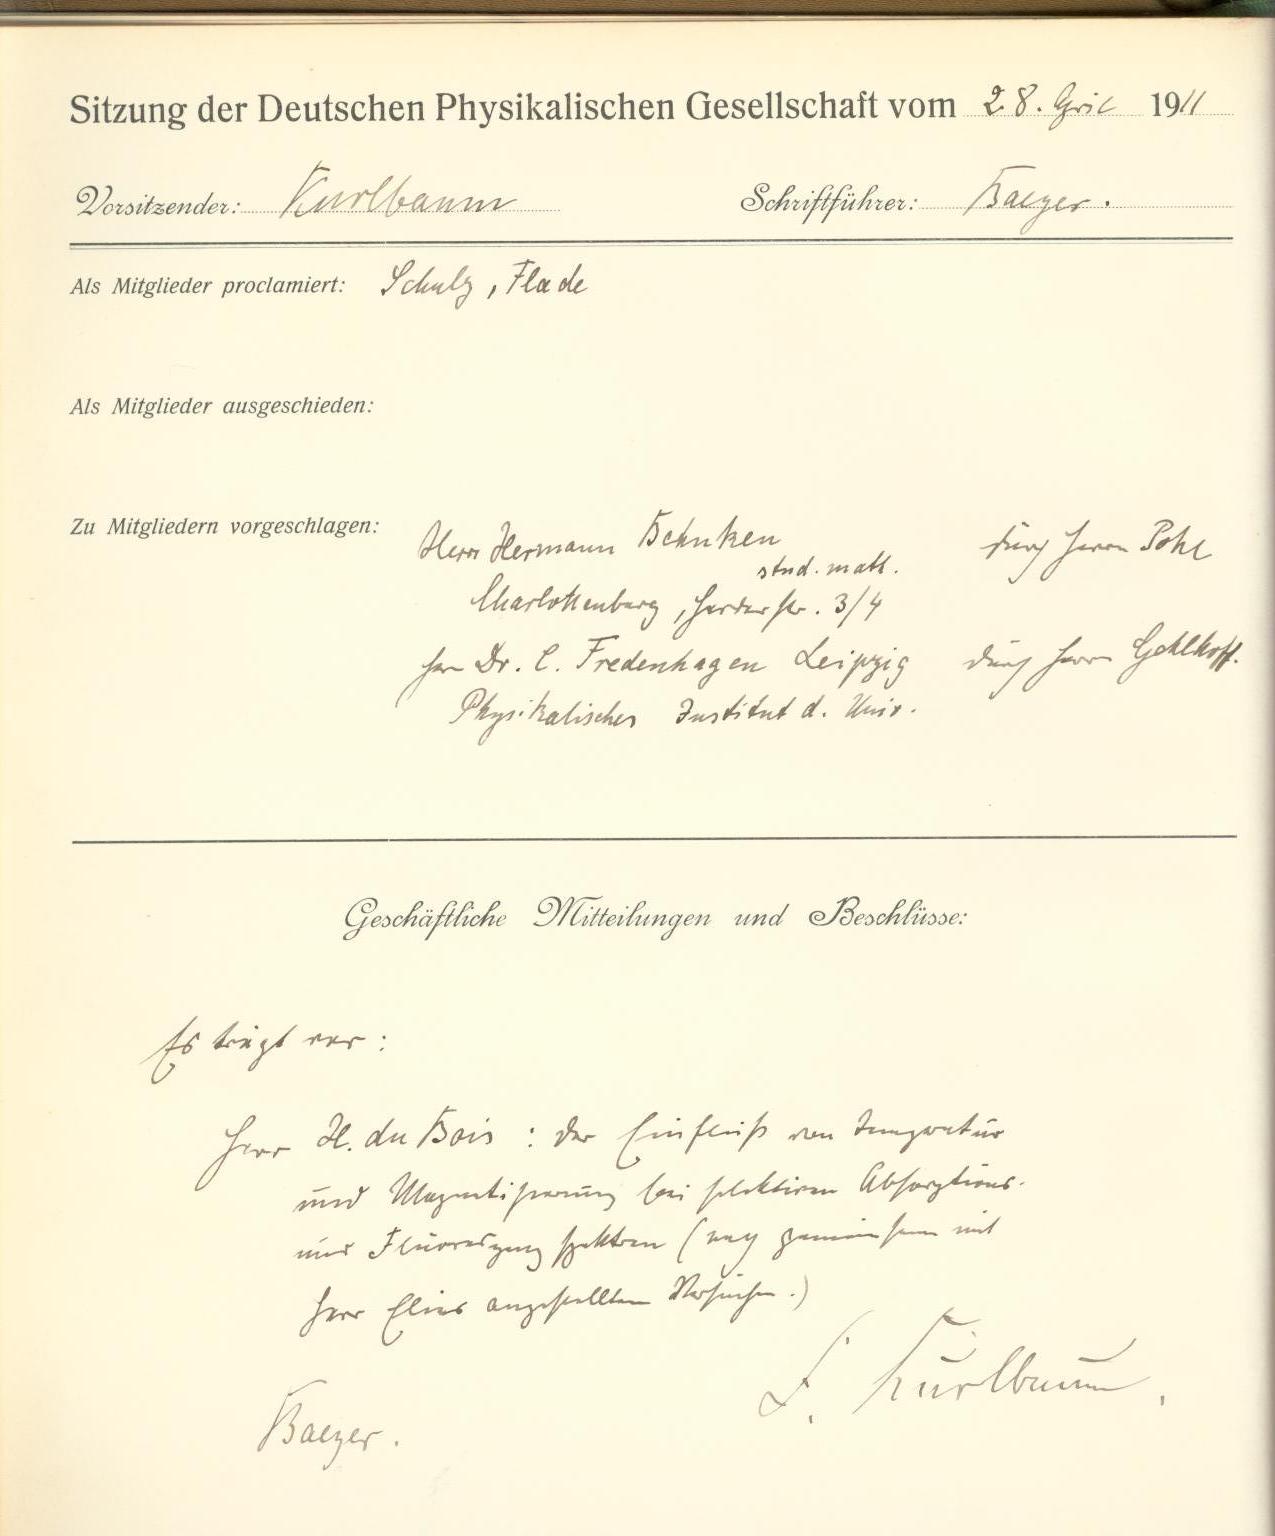 Sitzung der Deutschen Physikalischen Gesellschaft vom 28. April 1911
Vorsitzender: Kurlbaum Schriftführer: Baeyer.
Als Mitglieder proclamiert: Schulz, Flade
Als Mitglieder ausgeschieden:
Zu Mitgliedern vorgeschlagen: Herr Hermann Behnken durch Herrn Pohl
stud. math.
Charlottenburg, Herderstr. 3/4
Herr Dr. C. Fredenhagen Leipzig durch Herrn Gehlhoff.
Physikalisches Institut d. Univ.
Geschäftliche Mitteilungen und Beschlüsse:
Es trägt vor:
Herr H. du Bois: Der Einfluß von Temperatur
und Magnetisierung bei selektiven Absorptions-
und Fluoreszenzspektren (nach gemeinsam mit
Herr Elias angestellten Versuchen.)
F. Kurlbaum.
Baeyer.